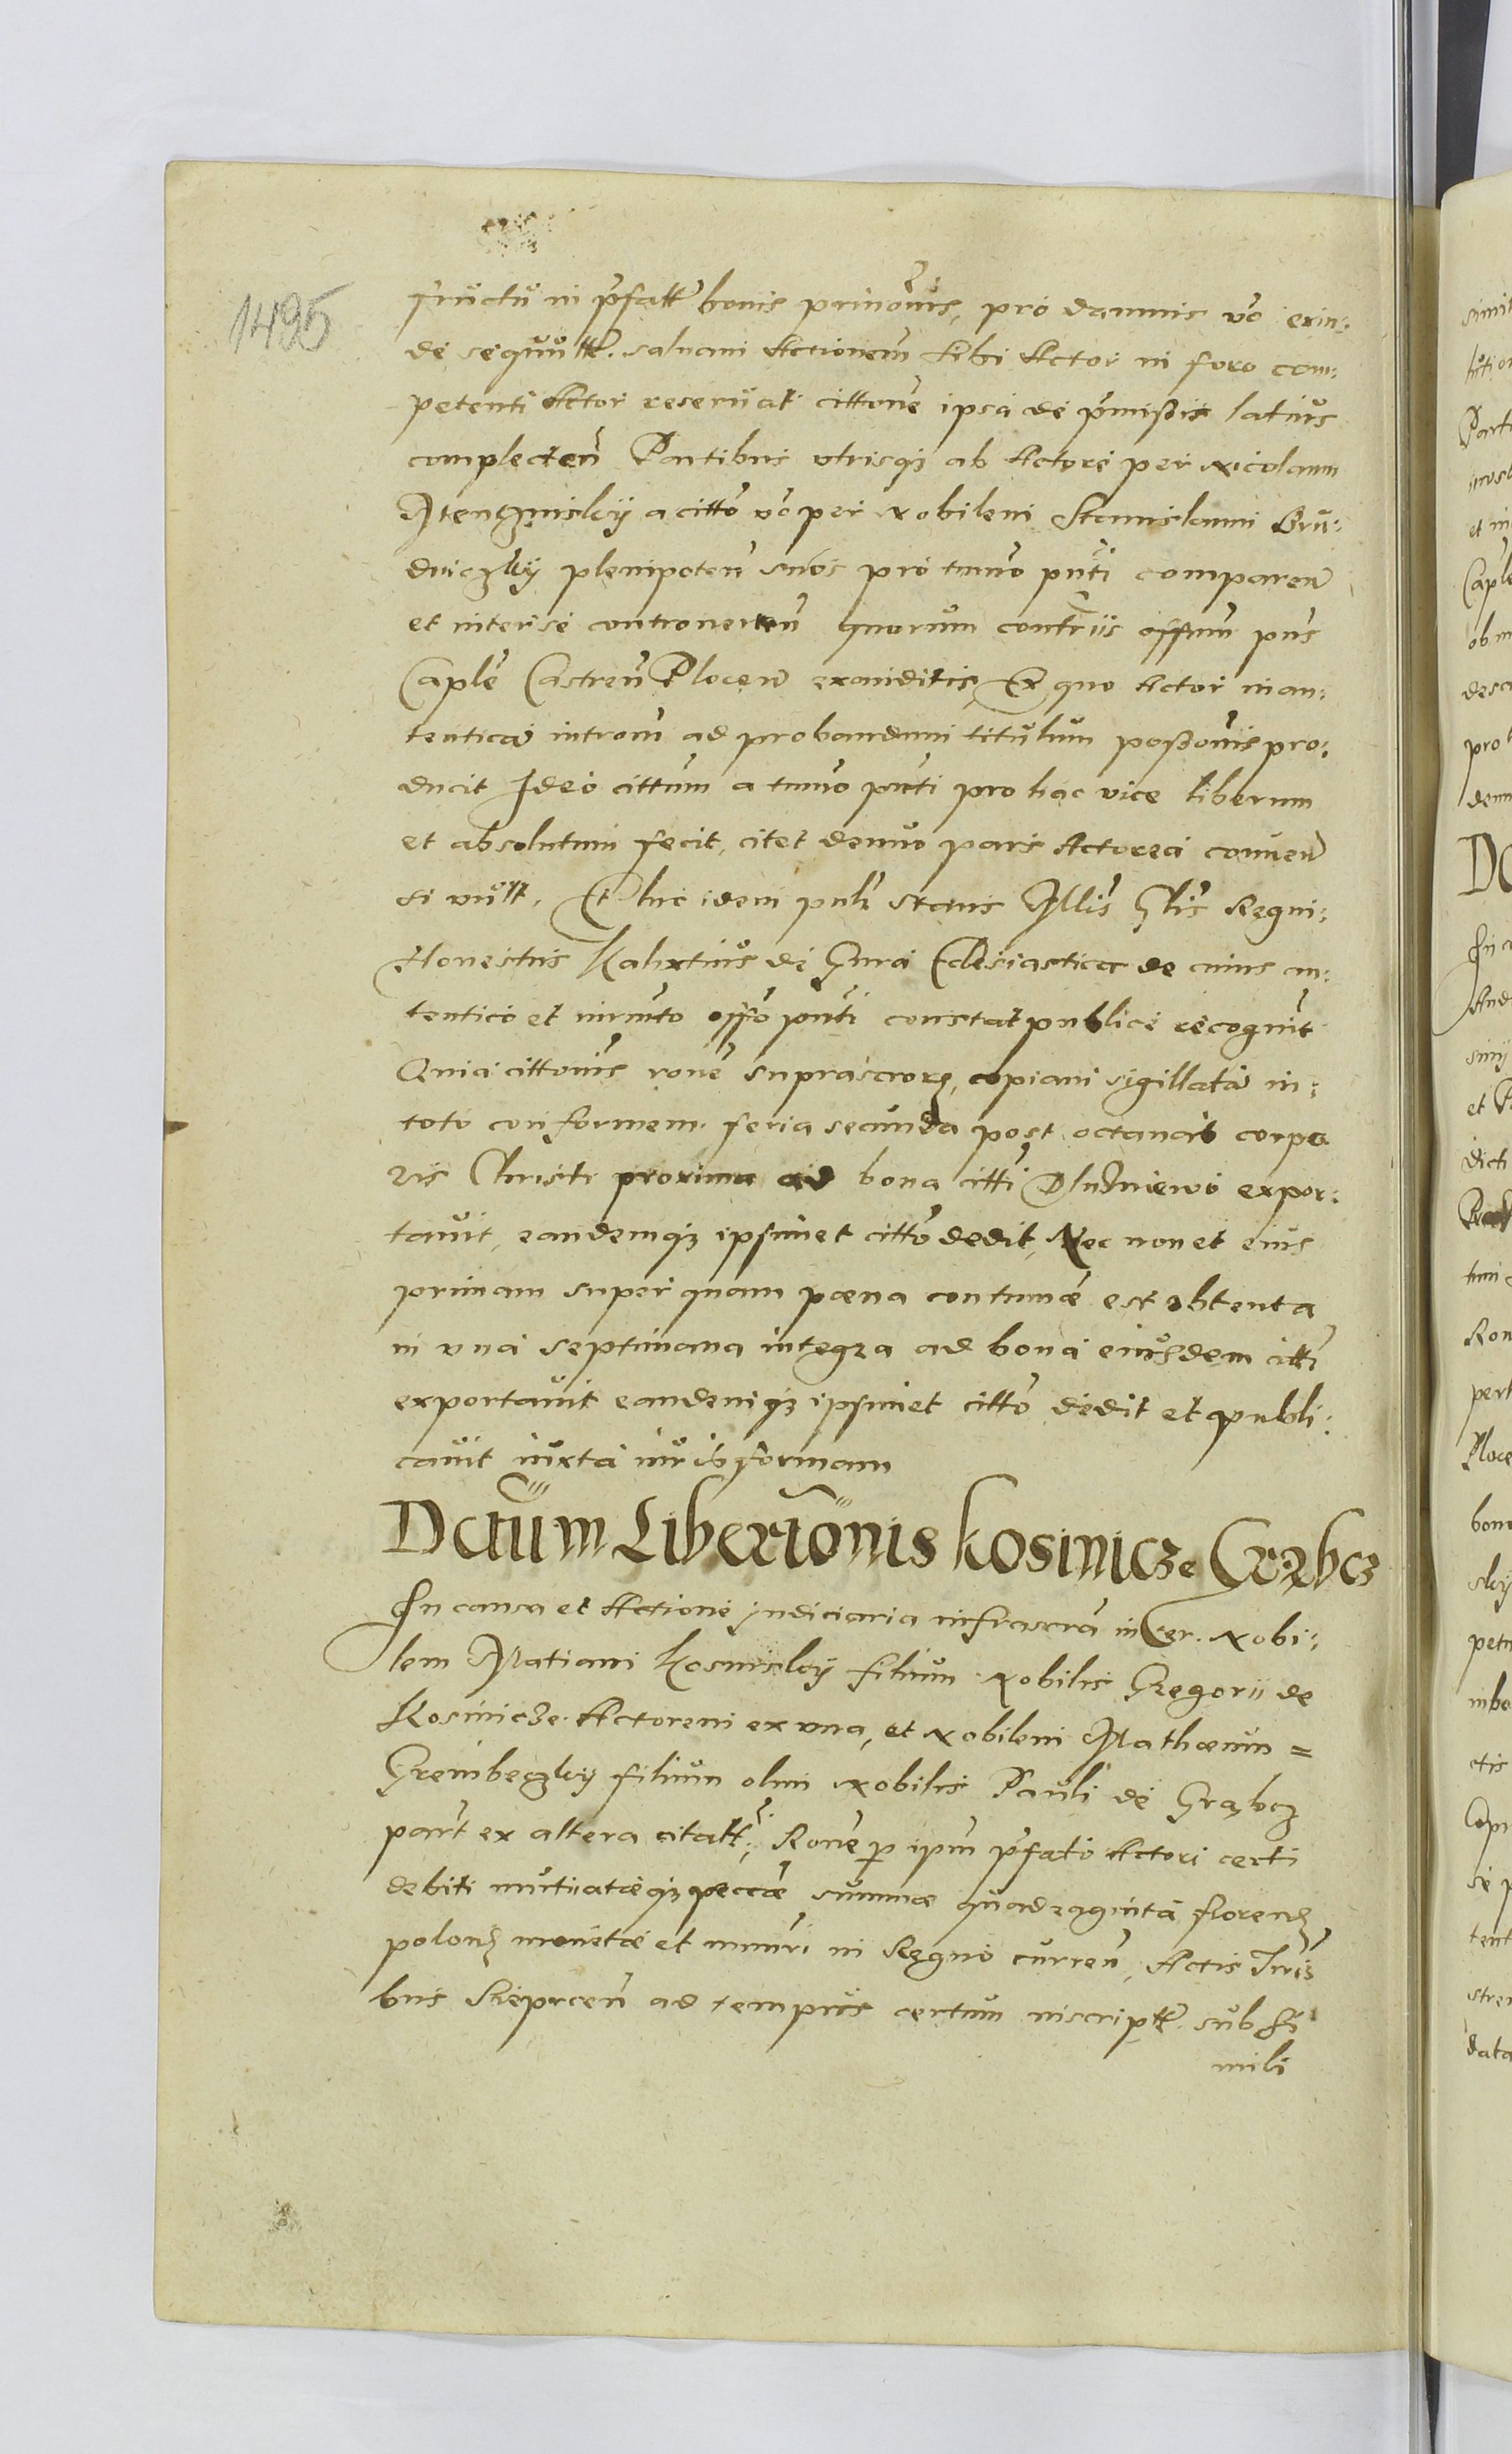 1495
fructu in pfatt bonis prinonis, pro damnis vo exin:
de sequutt. salvam Actionem sibi Actor in foro com:
petenti Actor reservat cittone ipsa de pmissis latius
complecten Partibus utrisqz ab Actore per Nicolaum
a citto vo per Nobilem Stanislaum Gru:
dniczkij plenipoten suos pro tmno pnti comparen
et inter se controverten quorum contriis offium pns
Caple Castren Plocen exauditis, Ex quo Actor inau:
tentica introm ad probandum titulum possonis pro:
ducit Ideo cittum a tmno pnti pro hac vice liberum
et absolutum fecit, citet denuo pars Actorea conuen
si vult. Et hic idem pnlr stans Mlis Glis Regni:
Honestus Kalixtus de Gura Eclesiastica de cuius au:
tentico et iurmto offo pnti constat publice recognit
Quia cittonis rone suprascrore, copiam sigillata in:
toto conformem feria secunda post octavas corpo
ris Christi proxima ad bona citti Dluzniewo expor:
tavit, eandemqz ipsimet citto dedit, Nec non et eius
primam super quam pæna contumæ est obtenta
in una septimana integra ad bona eiusdem citti
exportavit eandemqz ipsimet citto dedit et publi:
cavit iuxta iuris formam
Dctum Liberionis Kosinicze Grzbcz
In causa et Actione judiciaria infrascra inter Nobi:
lem Matiam Kosinskij filium Nobilis Gregorii de
Kosinicze Actorem ex una, et Nobilem Mathæum =
Grembeczkij filium olim Nobilis Pauli de Grąbcz
part ex altera citatt; Rone p ipm pfato Actori certi
debiti mutuatæqz peccæ summæ quadraginta floren
polon monetæ et numri in Regno curren, Actis Trris
bus Sieprcen ad tempus certum inscriptt. sub si
mili